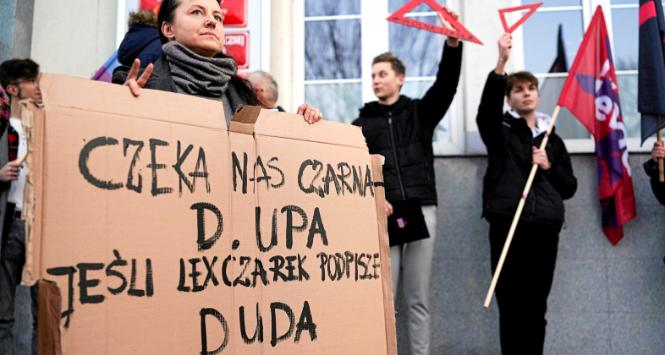 CZEKA NAS CZARNA
D. UPA
JEŚLI LEX CZAREK PODPISZE
DUDA